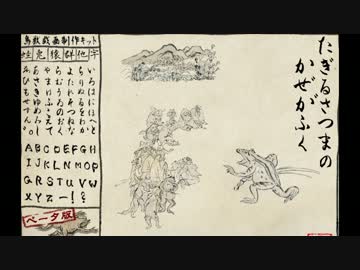 鳥獣戯画制作キット
蛙 兎 猿 群 他 字
いろはにほへと
ちりぬるをわか
よたれそつねな
らむうゐのおく
やまけふこえて
あさきゆめみし
ゑひもせすん
ABCDEFGH
IJKLMNOP
QRSTUVW
XYZー!?
ベータ版
たぎるさつまの
かぜがふく